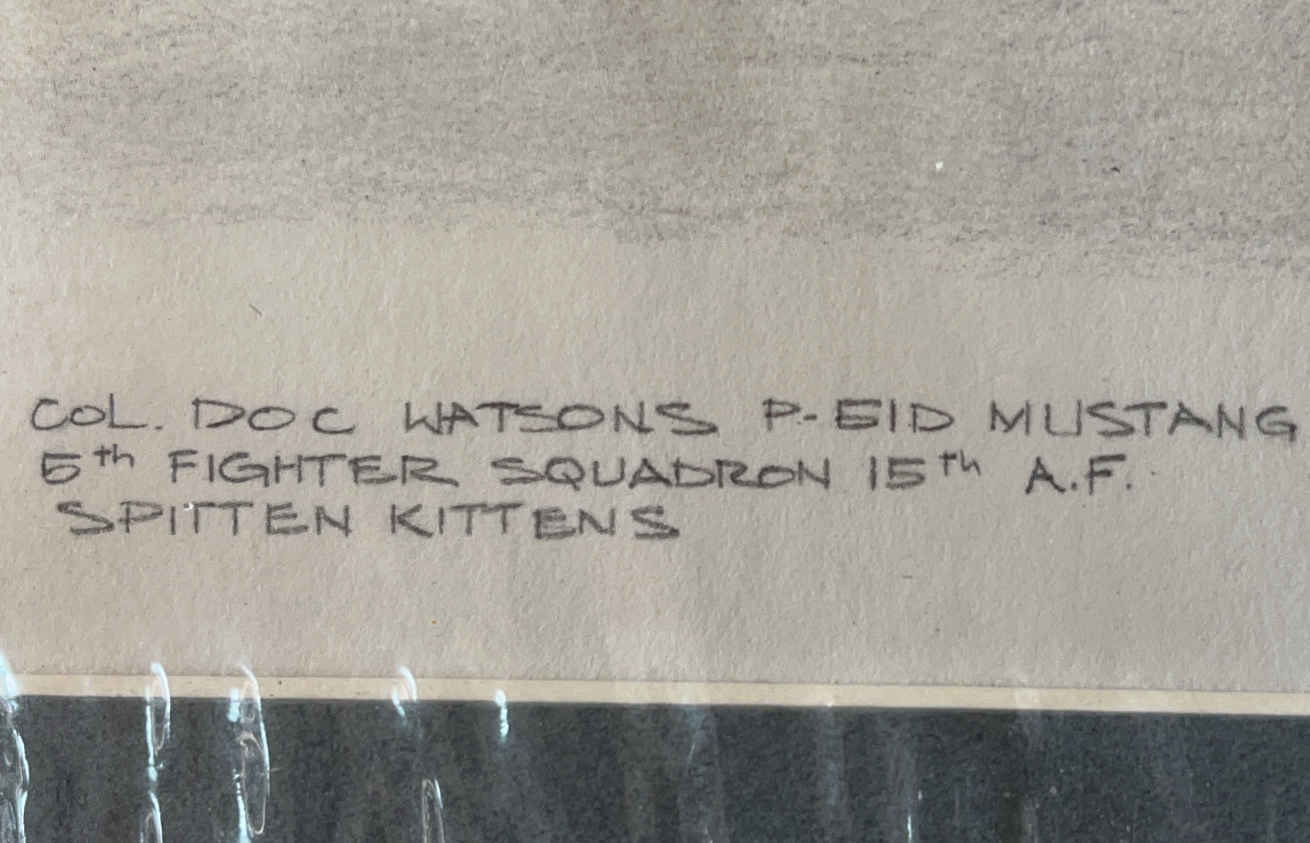 COL. DOC WATSONS P-51D MUSTANG
5th FIGHTER SQUADRON 15th A.F.
SPITTEN KITTENS